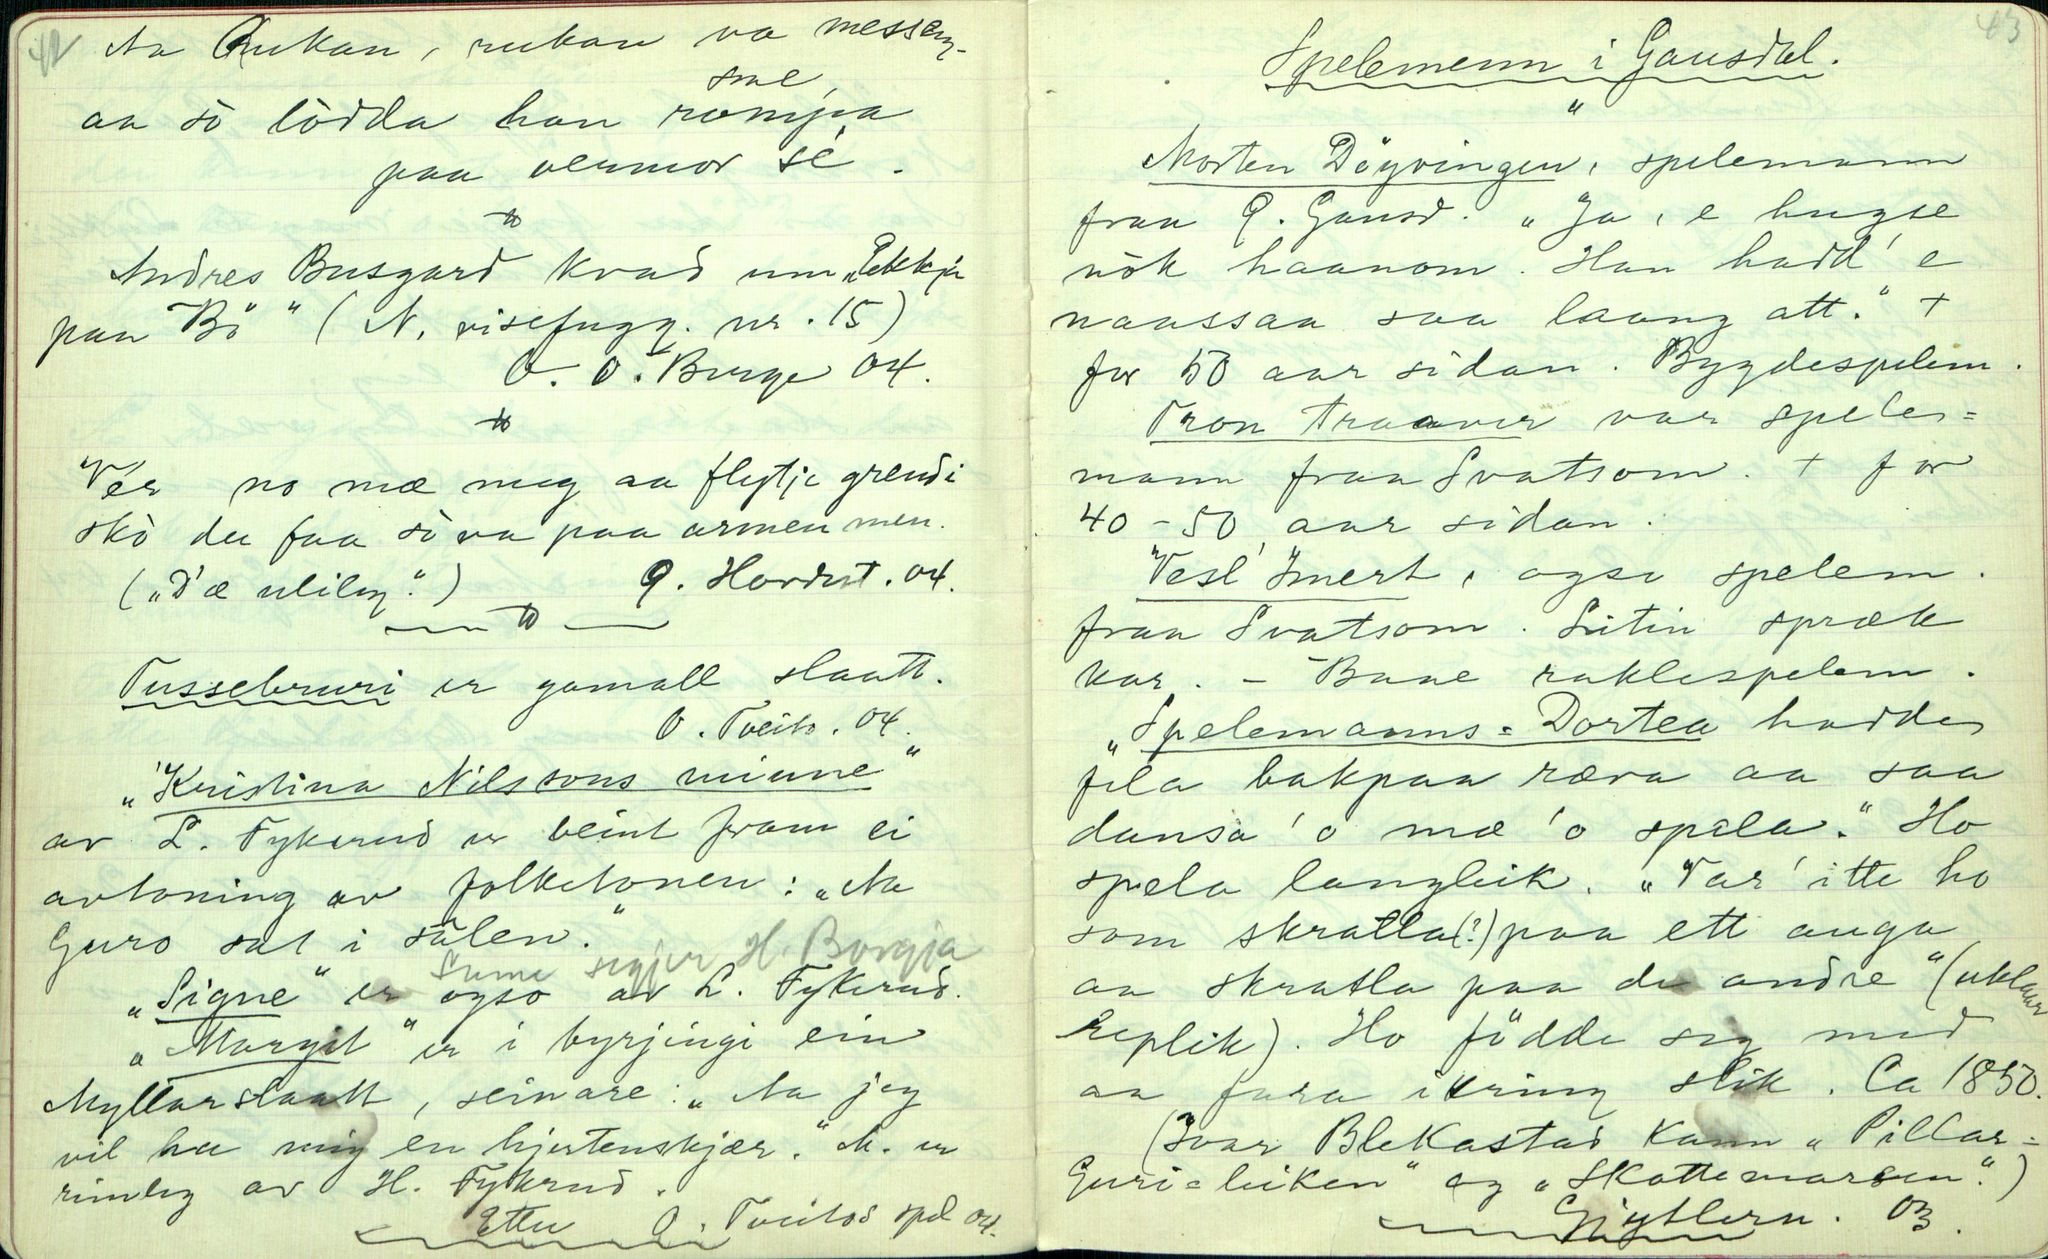 42
Aa Rukan, rukan va messam-
sme,
aa sò lödda han rompa
paa vermor sé.
Andres Busgard kvad um „Ekkja
paa Bö" (N. visefugg. nr. 15)
O. O. Burge 04.
Vér no mæ meg aa flytje grendi
skò du faa sòva paa armen men.
(„D'æ uliley.") Q. Hovdest. 04.
Tussebruri er gamall slaatt.
O. Tveito. 04.
„Kristina Nilssons minne"
av L. Fykerud er beint fram ei
avtoning av folketonen: „Aa
Guro sat i sálen."
Sume segjer H. Borgja
„Signe" er ogso av L. Fykerud.
„Margit" er i byrjingi ein
Myllarslaatt, seinare: „Aa jeg
vil ha mig en hjertenskjær." M. er
rimleg av H. Fykerud.
Etter O. Tveitos spel 04.
43
Spelemenn i Gausdal.
"
Morten Döyvingen, spelemann
fraa Q. Gausd. „Ja, e hugse
nòk haanom. Han hadd' e
naassaa saa laang att." +
for 50 aar sidan. Bygdespelem.
Tron Traaver var spele=
mann fraa Svatsom. + for
40-50 aar sidan.
Vesl' Imert, ogso spelem.
fraa Svatsom. Litin spræk
kar. - Baae raklespelem.
„Spelemanns=Dortea hadde
fela bakpaa ræva aa saa
dansa 'o mæ 'o spela." Ho
spela langleik. „Var' itte ho
som skratla(?) paa ett auga
aa skratla paa de andre" (uklaar
replik). Ho födde seg med
aa fara ikring slik. Ca 1850.
(Ivar Blekastad kann „Pillar=
Guri=leiken" og „Skottemarsen".)
Gjytlern. 03.